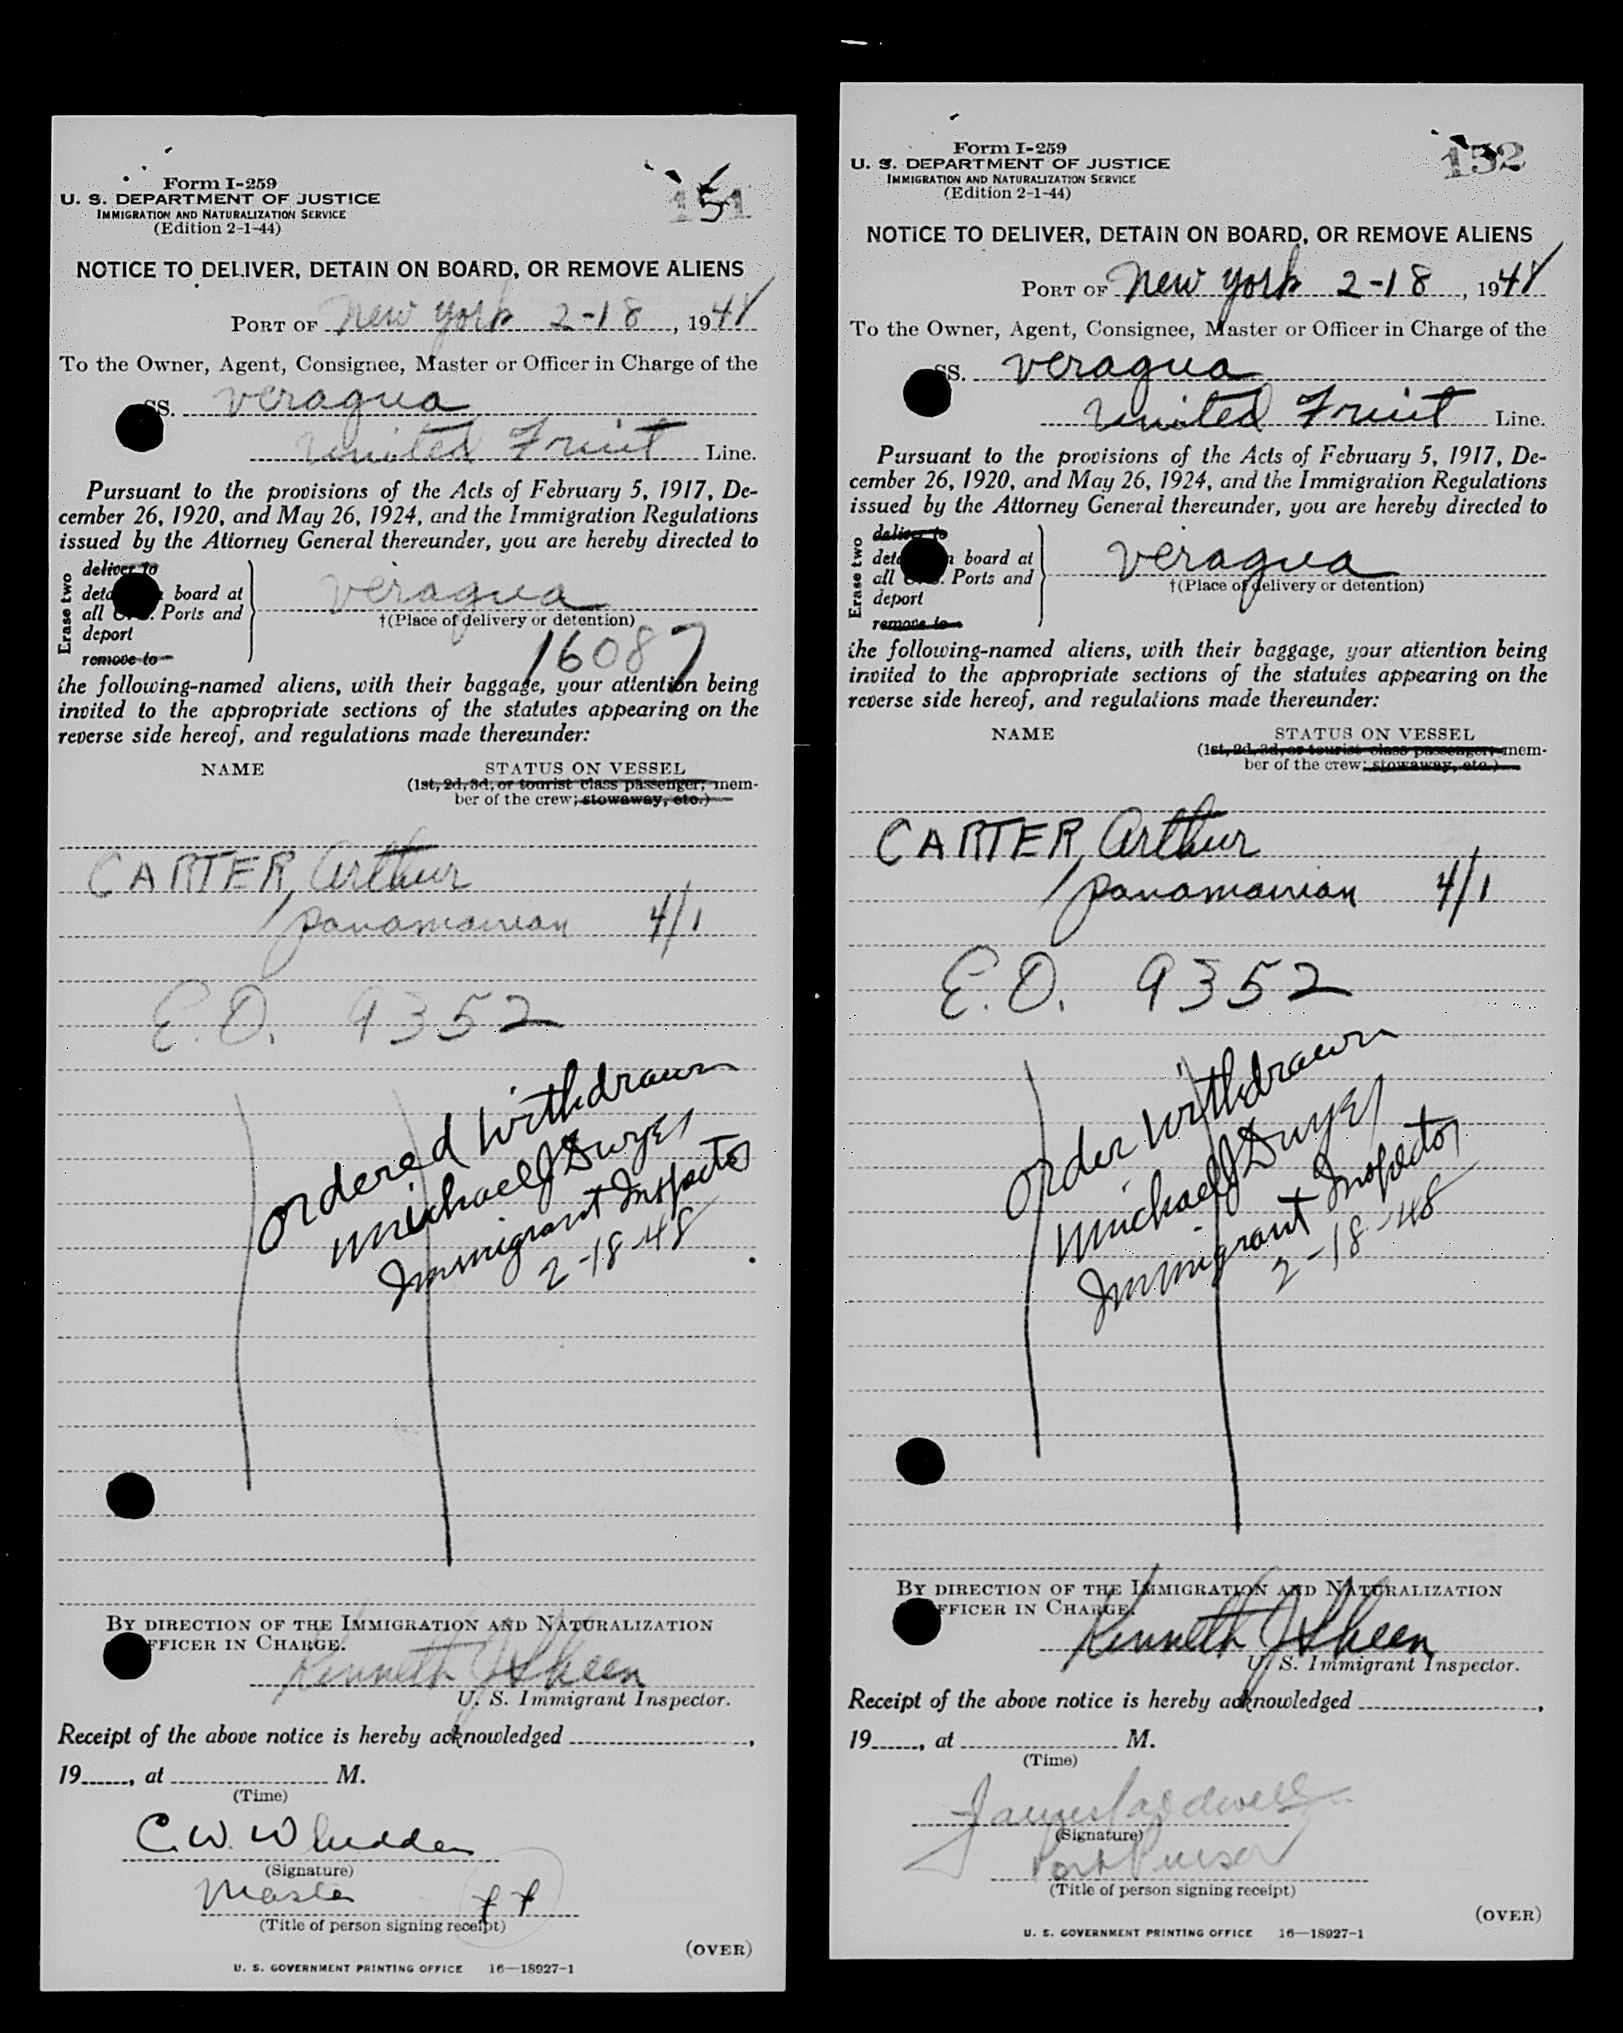 Form I-259
U. S. DEPARTMENT OF JUSTICE
IMMIGRATION AND NATURALIZATION SERVICE
(Edition 2-1-44)
151
NOTICE TO DELIVER, DETAIN ON BOARD, OR REMOVE ALIENS
PORT OF New York 2-18, 1948
To the Owner, Agent, Consignee, Master or Officer in Charge of the
SS. Veragua
United Fruit Line.
Pursuant to the provisions of the Acts of February 5, 1917, De-
cember 26, 1920, and May 26, 1924, and the Immigration Regulations
issued by the Attorney General thereunder, you are hereby directed to
Erase two
deliver to
board at
all Ports and
deport
remove to
Veragua
†(Place of delivery or detention)
16087
the following-named aliens, with their baggage, your attention being
invited to the appropriate sections of the statutes appearing on the
reverse side hereof, and regulations made thereunder:
NAME STATUS ON VESSEL
(1st, 2d, 3d, or tourist class passenger; mem-
ber of the crew; stowaway, etc.)
CARTER, Arthur
Panamanian 4/1
E.O. 9352
Ordered Withdrawn
Michael J Dwyer
Immigrant Inspector
2-18-48
BY DIRECTION OF THE IMMIGRATION AND NATURALIZATION
OFFICER IN CHARGE.
Kenneth J Sheen
U. S. Immigrant Inspector.
Receipt of the above notice is hereby acknowledged ,
19 , at M.
(Time)
C. W. Whidden
(Signature)
Master
(Title of person signing receipt)
(OVER)
U. S. GOVERNMENT PRINTING OFFICE 16—18927-1
Form I-259
U. S. DEPARTMENT OF JUSTICE
IMMIGRATION AND NATURALIZATION SERVICE
(Edition 2-1-44)
152
NOTICE TO DELIVER, DETAIN ON BOARD, OR REMOVE ALIENS
PORT OF New York 2-18, 1948
To the Owner, Agent, Consignee, Master or Officer in Charge of the
SS. Veragua
United Fruit Line.
Pursuant to the provisions of the Acts of February 5, 1917, De-
cember 26, 1920, and May 26, 1924, and the Immigration Regulations
issued by the Attorney General thereunder, you are hereby directed to
Erase two
deliver to
board at
all Ports and
deport
remove to
Veragua
†(Place of delivery or detention)
the following-named aliens, with their baggage, your attention being
invited to the appropriate sections of the statutes appearing on the
reverse side hereof, and regulations made thereunder:
NAME STATUS ON VESSEL
(1st, 2d, 3d, or tourist class passenger; mem-
ber of the crew; stowaway, etc.)
CARTER, Arthur
Panamanian 4/1
E.O. 9352
Order Withdrawn
Michael J Dwyer
Immigrant Inspector
2-18-48
BY DIRECTION OF THE IMMIGRATION AND NATURALIZATION
OFFICER IN CHARGE.
Kenneth J Sheen
U. S. Immigrant Inspector.
Receipt of the above notice is hereby acknowledged ,
19 , at M.
(Time)
James Caldwell
(Signature)
Port Purser
(Title of person signing receipt)
(OVER)
U. S. GOVERNMENT PRINTING OFFICE 16—18927-1